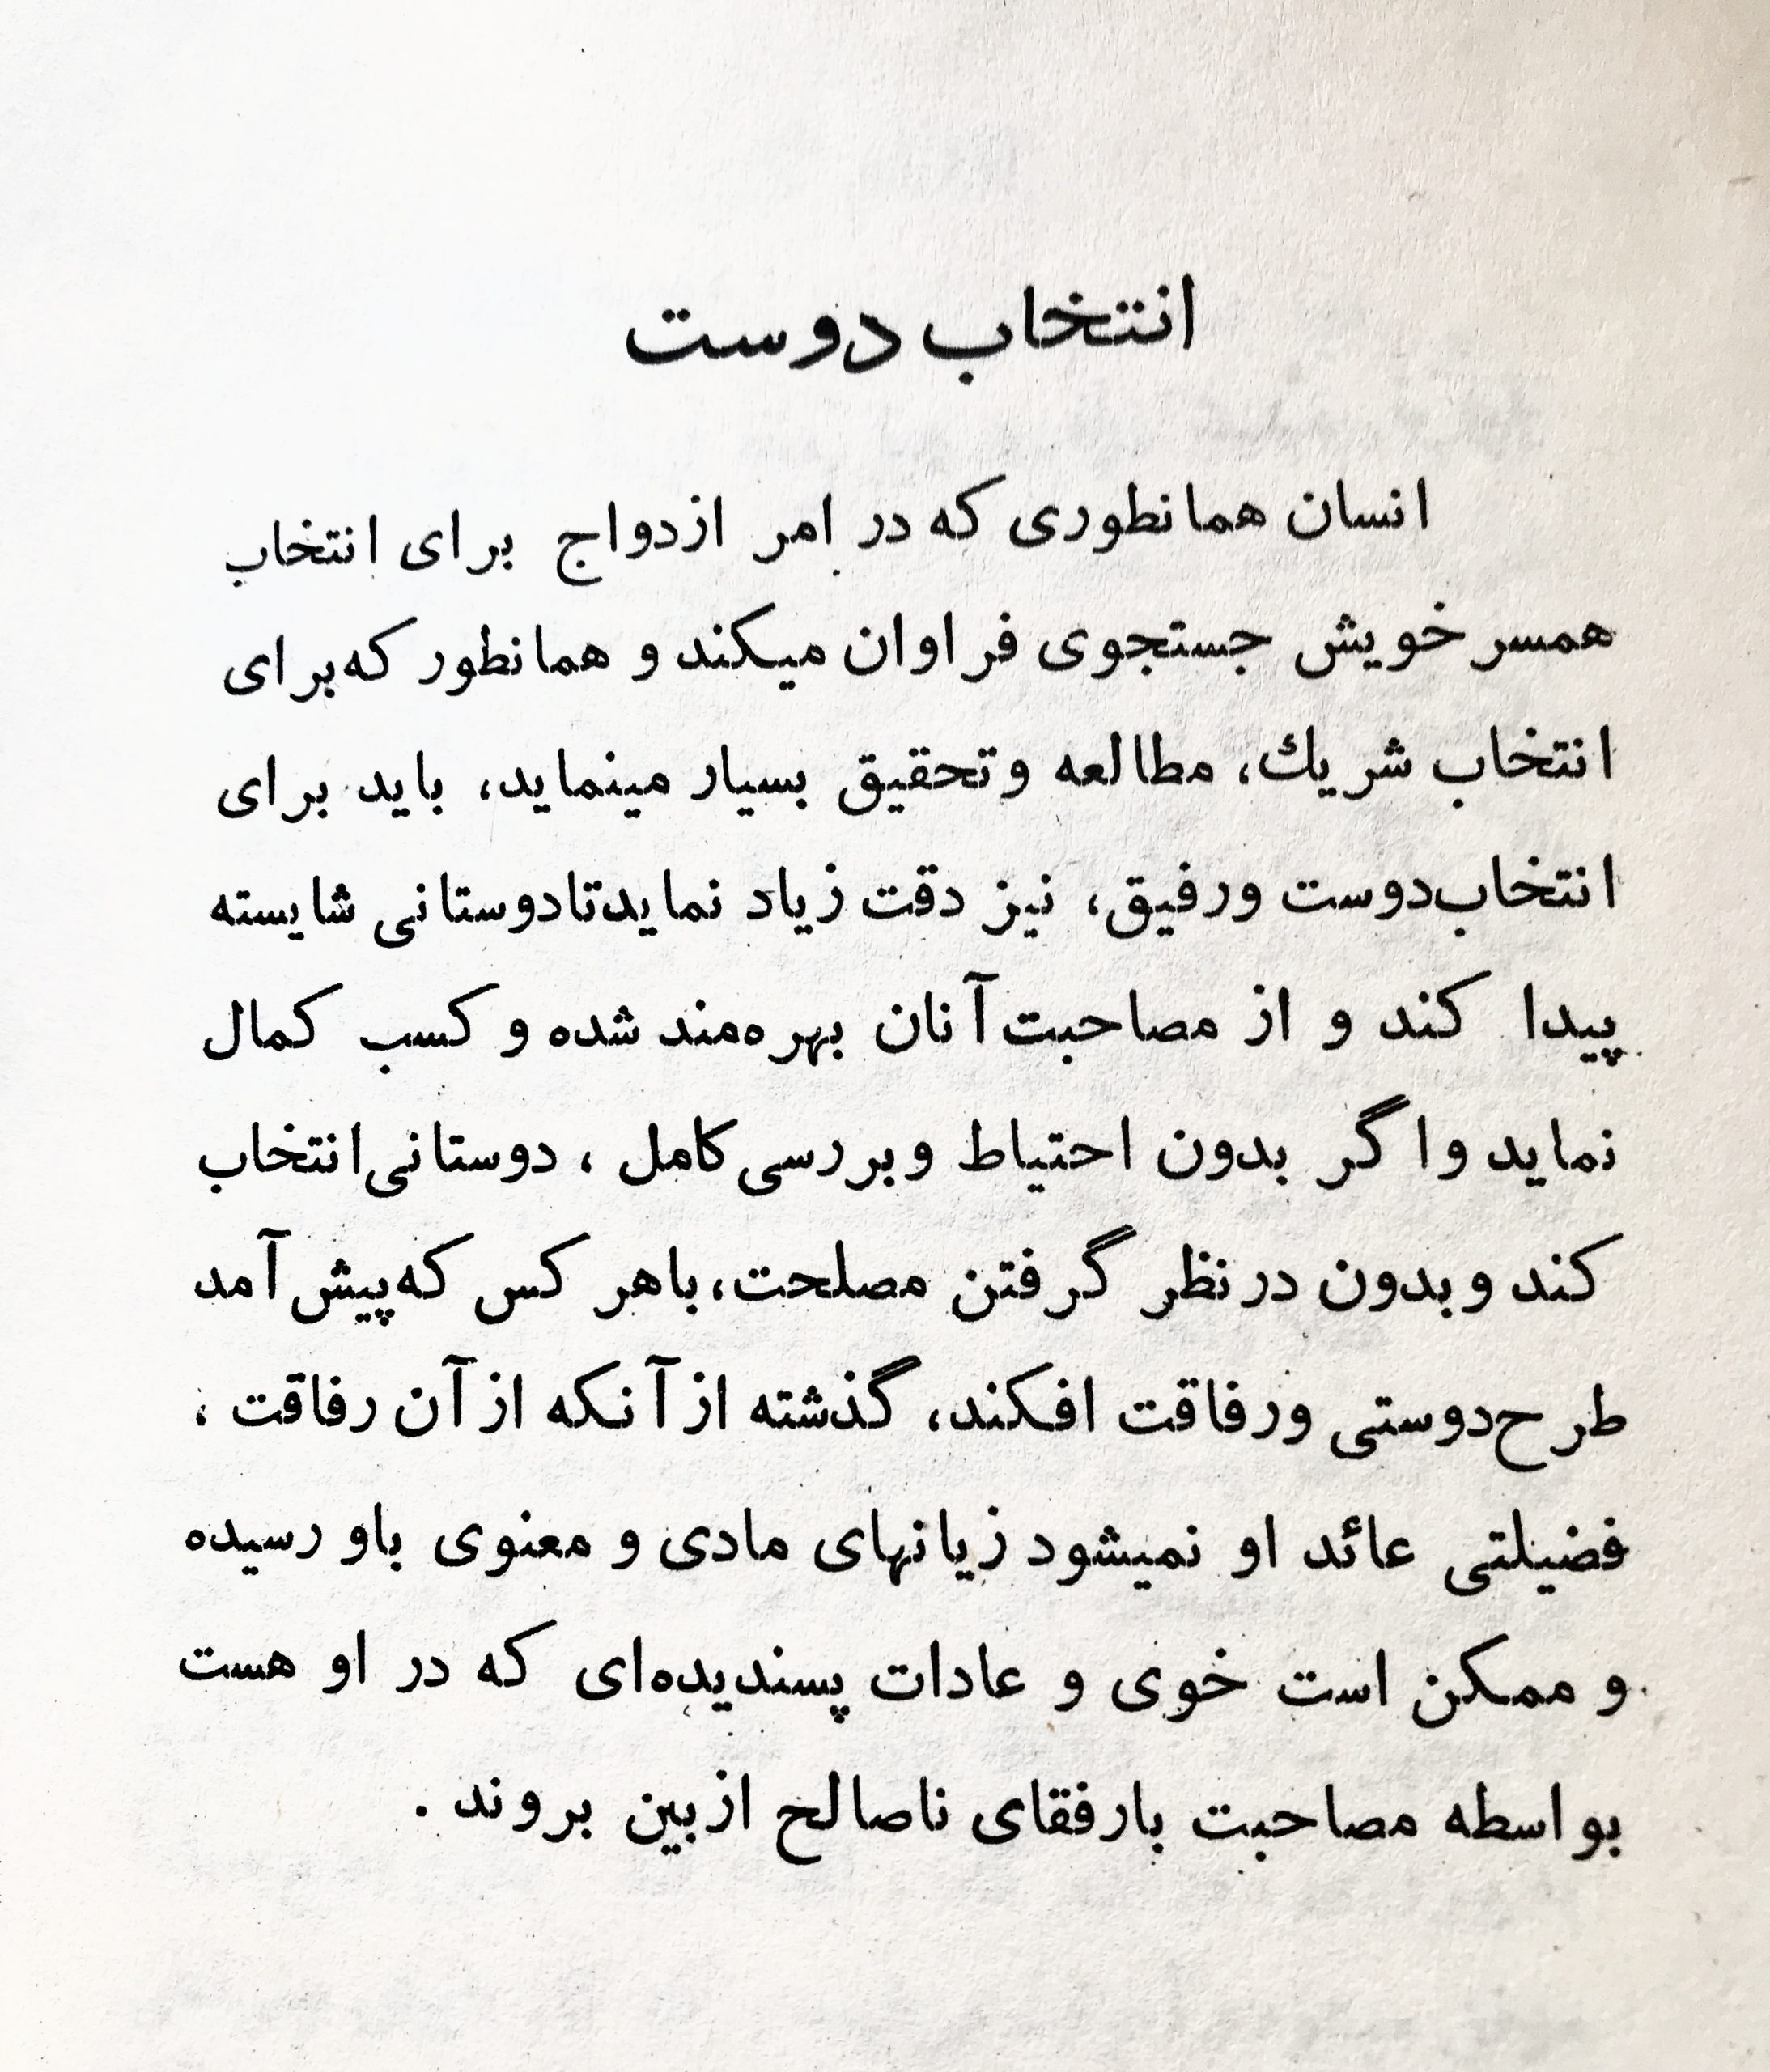 انتخاب دوست
انسان همانطوری که در امر ازدواج برای انتخاب
همسر خویش جستجوی فراوان میکند و همانطور که برای
انتخاب شریك، مطالعه و تحقیق بسیار مینماید، باید برای
انتخاب دوست و رفیق، نیز دقت زیاد نماید تا دوستانی شایسته
پیدا کند و از مصاحبت آنان بهره‌مند شده و کسب کمال
نماید و اگر بدون احتیاط و بررسی کامل ، دوستانی انتخاب
کند و بدون در نظر گرفتن مصلحت، با هر کس که پیش آمد
طرح دوستی و رفاقت افکند، گذشته از آنکه از آن رفاقت ،
فضیلتی عائد او نمیشود زیانهای مادی و معنوی باو رسیده
و ممکن است خوی و عادات پسندیده‌ای که در او هست
بواسطه مصاحبت با رفقای ناصالح از بین بروند .